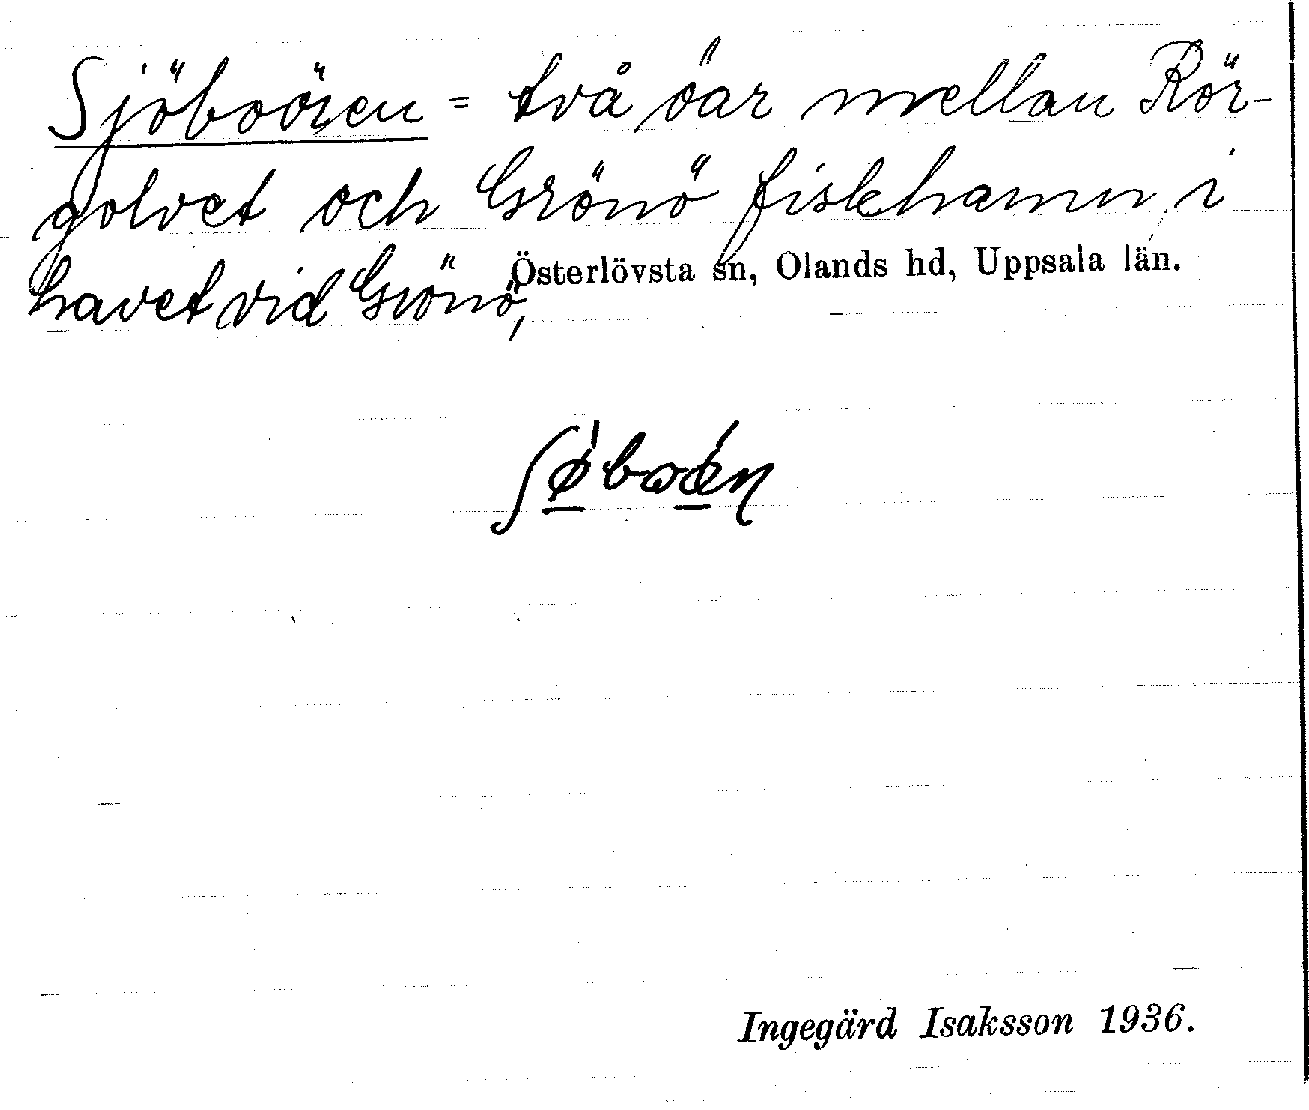 Sjöboören = två öar mellan Rör-
golvet och Grönö fiskhamn, i
havet vid Grönö,
Österlövsta sn, Olands hd, Uppsala län.
Ingegärd Isaksson 1936.